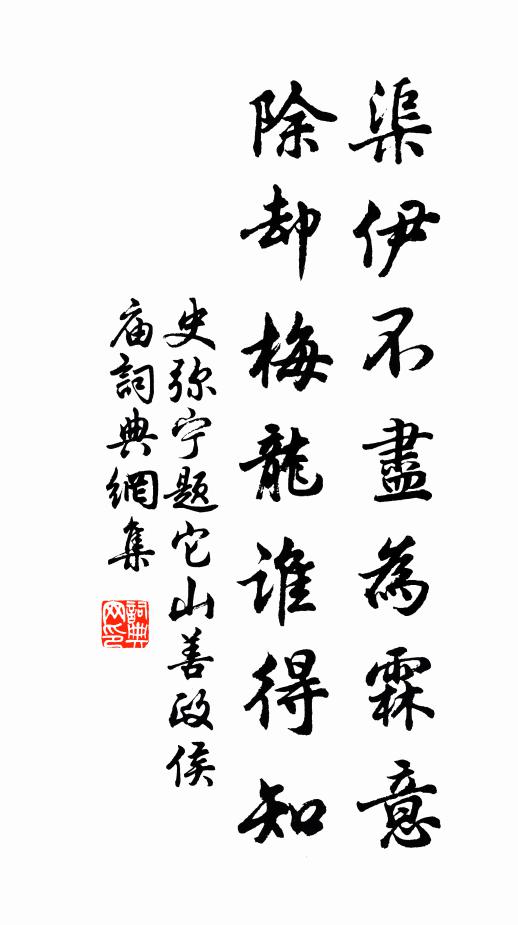 渠伊不盡為霖意
除却梅龍誰得知
史弥宁题它山善政侯
庙詞典網集
詞典网印